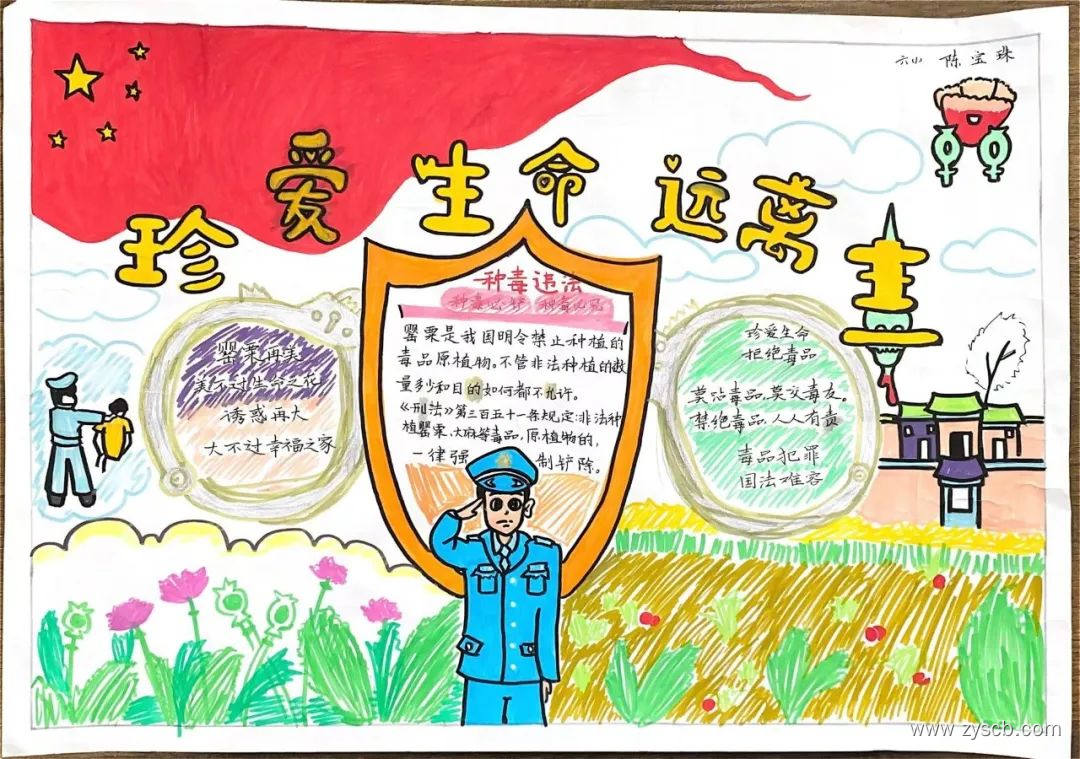 六小 陈宝珠
珍爱生命远离毒
种毒违法
种毒必铲 种毒必究
罂粟是我国明令禁止种植的
毒品原植物。不管非法种植的数
量多少和目的如何都不允许。
《刑法》第三百五十一条规定:非法种
植罂粟、大麻等毒品,原植物的,
一律强制铲除。
罂粟再美
美不过生命之花
诱惑再大
大不过幸福之家
珍爱生命
拒绝毒品
莫沾毒品,莫交毒友。
禁绝毒品,人人有责
毒品犯罪
国法难容
www.zyscb.com